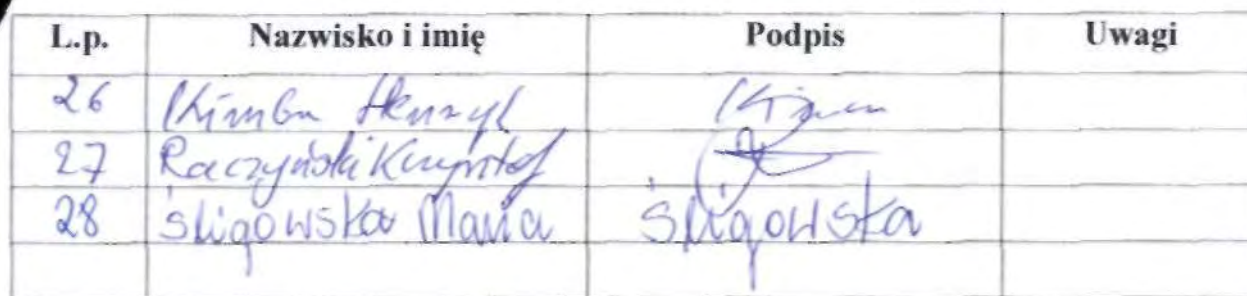 L.p. Nazwisko i imię Podpis Uwagi
26 Kimba Henryk
27 Raczyński Krzysztof
28 Śligowska Maria Śligowska